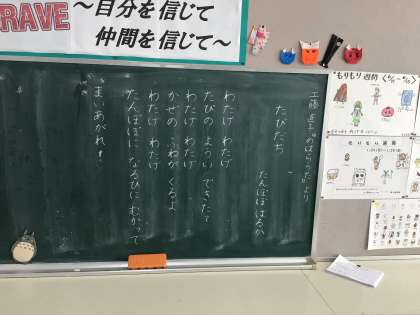 BRAVE
～自分を信じて
仲間を信じて～
工藤直子「のはらうた」より
たびだち
たんぽぽはるか
わたげ わたげ
たびの ようい できたて
わたげ わたげ
かぜの ふねが くるよ
わたげ わたげ
たんぽぽに なるひに むかって
まいあがれ！
もりもり週間
もりもり週間